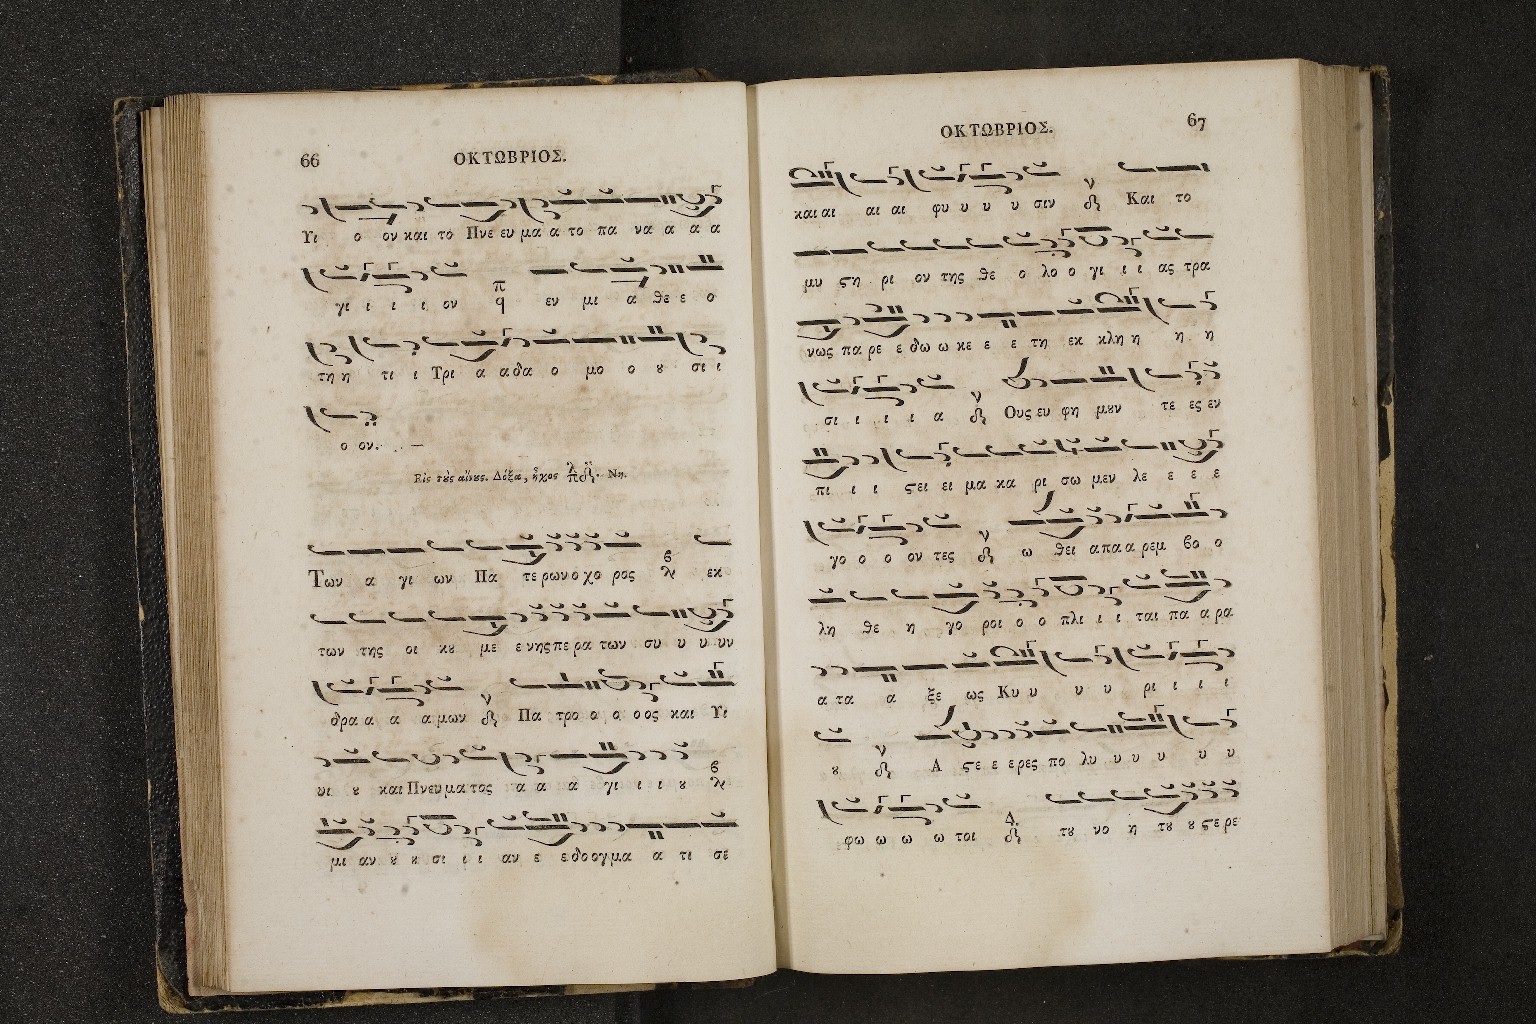 66
ΟΚΤΩΒΡΙΟΣ.
Υι ο ον και το Πνε ευ μα α το πα να α α α
γι ι ι ι ον εν μι α θε ε ο
τη η τι ι Τρι α α δα ο μο ο ȣ σι ι
ο ον.
Εἰς τȣ̀ς αἴνȣς. Δόξα, ἦχος Νη.
Των α γι ων Πα τε ρων ο χο ρος εκ
των της οι κȣ με ε νης πε ρα των συ υ υ υν
δρα α α α μων Πα τρο ο ο ο ος και Υι
υι ȣ και Πνευ μα τος α α α γι ι ι ȣ
μι αν ȣ ȣ σι ι ι αν ε ε δο ογ μα α τι σε
67
ΟΚΤΩΒΡΙΟΣ.
και αι αι αι φυ υ υ υ σιν Και το
μυ ϛη ρι ον της θε ο λο ο γι ι ι ας τρα
νως πα ρε ε δω ω κε ε ε τη εκ κλη η η η
σι ι ι ι α Ους ευ φη μȣν τε ες εν
πι ι ι ϛει ει μα κα ρι σω μεν λε ε ε ε
γο ο ο ον τες ω θει α πα α ρεμ βο ο
λη θε η γο ροι ο ο πλι ι ι ται πα α ρα
α τα α ξε ως Κυ υ υ υ ρι ι ι ι
ȣ Α ϛε ε ε ρες πο λυ υ υ υ υ υ
φω ω ω ω τοι τȣ νο η τȣ ȣ ϛε ρε